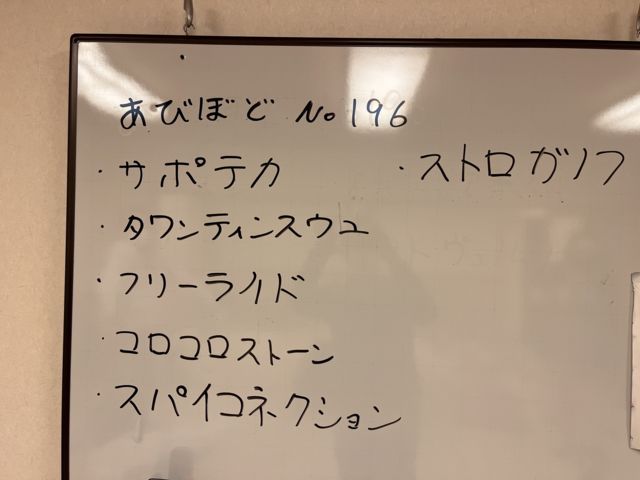 あびぼど No 196
・サポテカ
・ストロガノフ
・タワンティンスウユ
・フリーライド
・コロコロストーン
・スパイコネクション